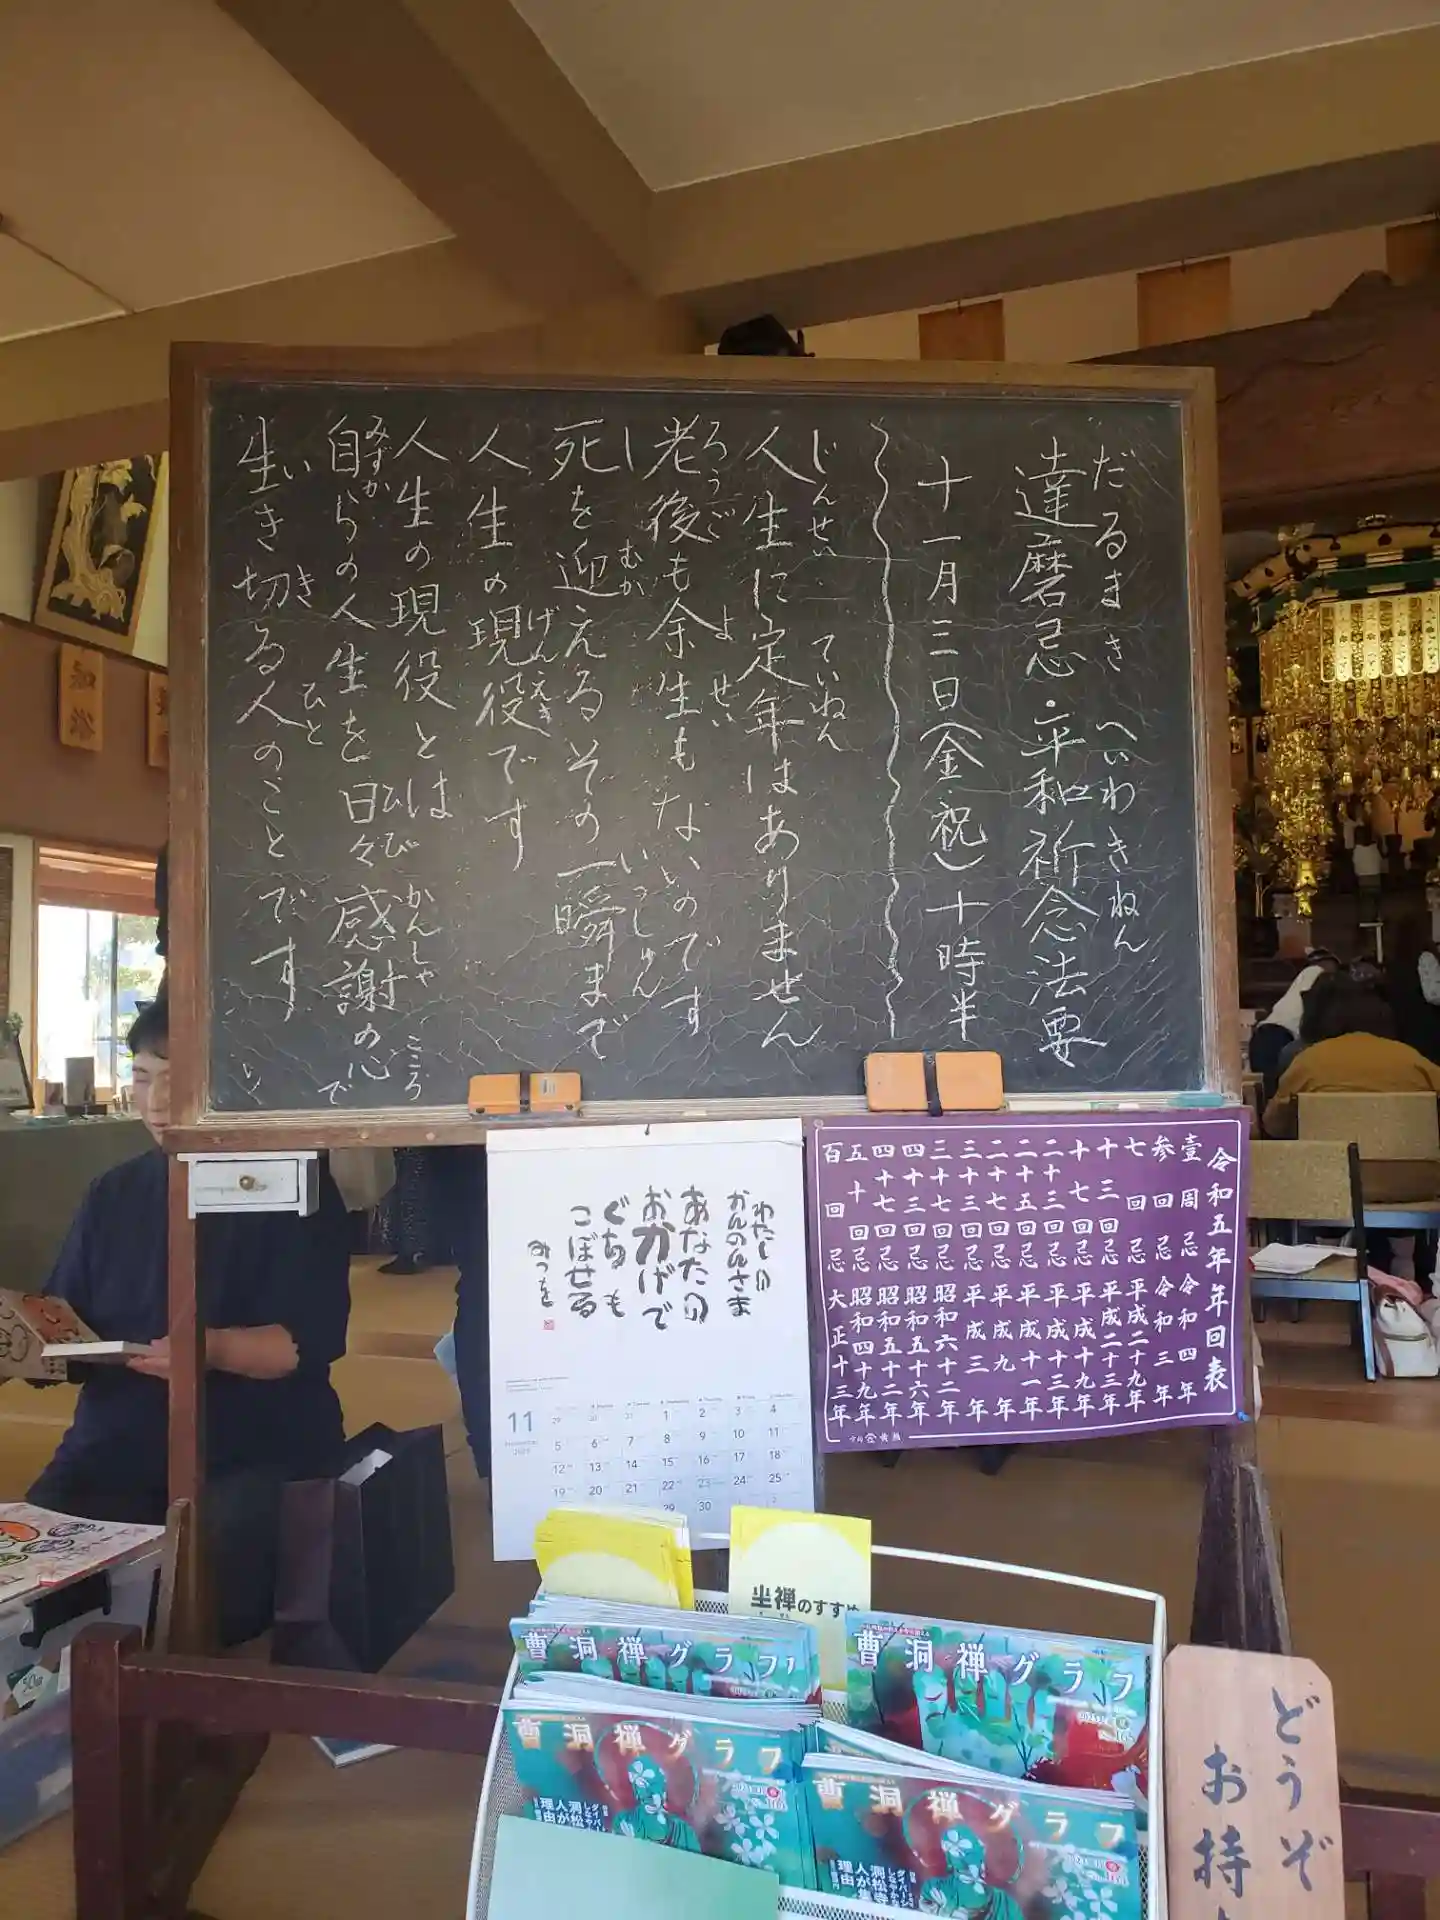 だるまき へいわきねん
達磨忌・平和祈念法要
十一月三日(金・祝)十時半
じんせい ていねん
人生に定年はありません
ろうご よせい
老後も余生もないのです
し むか いっしゅん
死を迎えるその一瞬まで
げんえき
人生の現役です
人生の現役とは
みずか ひび かんしゃ こころ
自らの人生を日々感謝の心で
い き ひと
生き切る人のことです
わたしの
かんのんさま
あなたの
おかげで
ぐちも
こぼせる
みつを
11
29 30 31 1 2 3 4
5 6 7 8 9 10 11
12 13 14 15 16 17 18
19 20 21 22 23 24 25
29 30
令和五年年回表
壹周忌 令和四年
参回忌 令和三年
七回忌 平成二十九年
十三回忌 平成二十三年
十七回忌 平成十九年
二十三回忌 平成十三年
二十五回忌 平成十一年
二十七回忌 平成九年
三十三回忌 平成三年
三十七回忌 昭和六十二年
四十三回忌 昭和五十六年
四十七回忌 昭和五十二年
五十回忌 昭和四十九年
百回忌 大正十三年
坐禅のすすめ
曹洞禅グラフ
曹洞禅グラフ
曹洞禅グラフ
曹洞禅グラフ
どうぞ
お持